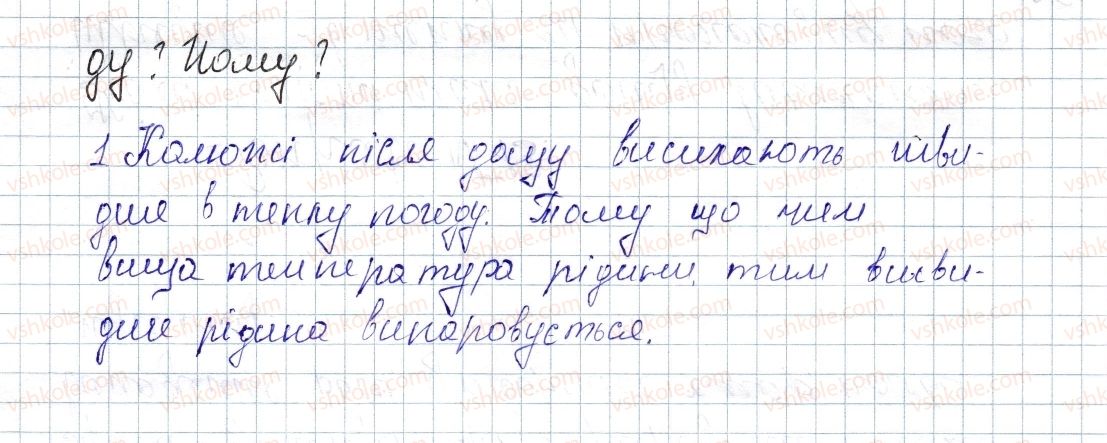 ду? Чому?
1 Калюжі після дощу висихають шви-
дше в теплу погоду. Тому що чим
вища температура рідини, тим шви-
дше рідина випаровується.